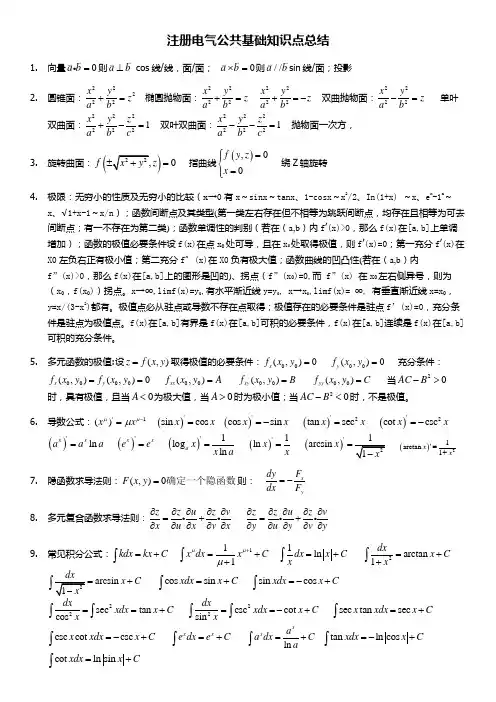 注册电气公共基础知识点总结
1. 向量 a•b=0 则 a⊥b cos线/线，面/面； a×b=0 则 a//b sin线/面；投影
2. 圆锥面：x²/a²+y²/b²=z² 椭圆抛物面：x²/a²+y²/b²=z x²/a²+y²/b²=-z 双曲抛物面：x²/a²-y²/b²=z 单叶
双曲面：x²/a²+y²/b²-z²/c²=1 双叶双曲面：x²/a²-y²/b²-z²/c²=1 抛物面一次方，
3. 旋转曲面：f(±√(x²+y²),z)=0 指曲线{f(y,z)=0 x=0 绕Z轴旋转
4. 极限：无穷小的性质及无穷小的比较（x→0有x～sinx～tanx、1-cosx～x²/2、In(1+x) ～x、eˣ-1ˣ～
x、√1+x-1～x/n）；函数间断点及其类型(第一类左右存在但不相等为跳跃间断点，均存在且相等为可去
间断点；有一不存在为第二类)；函数单调性的判别（若在(a,b)内f′(x)>0，那么f(x)在[a,b]上单调
增加）；函数的极值必要条件设f(x)在点x₀处可导，且在x₀处取得极值，则f′(x)=0；第一充分f′(x)在
X0左负右正有极小值；第二充分f″(x)在X0负有极大值；函数曲线的凹凸性(若在(a,b)内
f″(x)>0，那么f(x)在[a,b]上的图形是凹的)、拐点（f″(x₀)=0,而f″(x) 在x₀左右侧异号，则为
（x₀，f(x₀)）拐点。x→∞,limf(x)=y₀,有水平渐近线y=y₀, x→x₀,limf(x)= ∞, 有垂直渐近线x=x₀，
y=x/(3-x²)都有。极值点必从驻点或导数不存在点取得；极值存在的必要条件是驻点f′(x)=0，充分条
件是驻点为极值点。f(x)在[a,b]有界是f(x)在[a,b]可积的必要条件，f(x)在[a,b]连续是f(x)在[a,b]
可积的充分条件。
5. 多元函数的极值:设z=f(x,y)取得极值的必要条件：fₓ(x₀,y₀)=0 f_y(x₀,y₀)=0 充分条件：
fₓ(x₀,y₀)=f_y(x₀,y₀)=0 f_xx(x₀,y₀)=A f_xy(x₀,y₀)=B f_yy(x₀,y₀)=C 当AC-B²>0
时，具有极值，且当A<0为极大值，当A>0时为极小值；当AC-B²<0时，不是极值。
6. 导数公式：(x^μ)'=μx^(μ-1) (sin x)'=cos x (cos x)'=-sin x (tan x)'=sec² x (cot x)'=-csc² x
(aˣ)'=aˣ ln a (eˣ)'=eˣ (logₐ x)'=1/(x ln a) (ln x)'=1/x (arcsin x)'=1/√(1-x²) (arctan x)'=1/(1+x²)
7. 隐函数求导法则：F(x,y)=0确定一个隐函数则： dy/dx=-Fₓ/F_y
8. 多元复合函数求导法则：∂z/∂x=∂z/∂u•∂u/∂x+∂z/∂v•∂v/∂x ∂z/∂y=∂z/∂u•∂u/∂y+∂z/∂v•∂v/∂y
9. 常见积分公式：∫kdx=kx+C ∫x^μ dx=1/(μ+1) x^(μ+1)+C ∫1/x dx=ln|x|+C ∫dx/(1+x²)=arctan x+C
∫dx/√(1-x²)=arcsin x+C ∫cos xdx=sin x+C ∫sin xdx=-cos x+C
∫dx/cos² x=∫sec² xdx=tan x+C ∫dx/sin² x=∫csc² xdx=-cot x+C ∫sec x tan xdx=sec x+C
∫csc x cot xdx=-csc x+C ∫eˣdx=eˣ+C ∫aˣdx=aˣ/ln a+C ∫tan xdx=-ln|cos x|+C
∫cot xdx=ln|sin x|+C